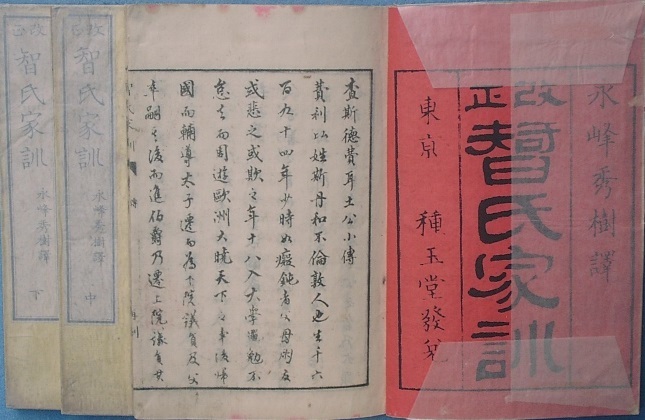 永峰秀樹譯
改正智氏家訓
東京 種玉堂發兌
査斯德費耳土公小傳
費利以姓斯丹和不倫敦人也生千六
百九十四年少時如癡鈍者父母友
或悲之或欺之年十八入大學勉不
怠去而周遊歐洲大曉天下之事後帰
國而輔導太子遷而為下院議員及父
卒嗣之後而進伯爵乃遷上院議員其
改正智氏家訓
永峰秀樹譯
中
改正智氏家訓
永峰秀樹譯
下